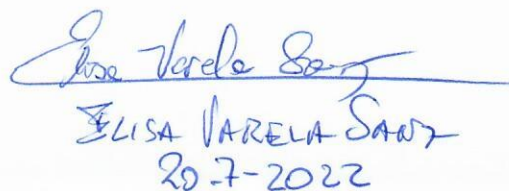 Elisa Varela Sanz
ELISA VARELA SANZ
20-7-2022